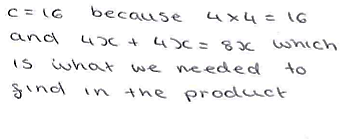 c = 16 because 4 x 4 = 16
and 4x + 4x = 8x which
is what we needed to
find in the product